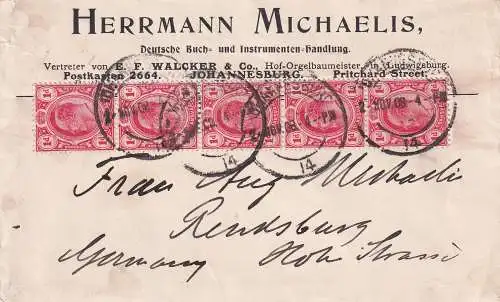 HERRMANN MICHAELIS,
Deutsche Buch- und Instrumenten-Handlung.
Vertreter von E. F. WALCKER & Co., Hof-Orgelbaumeister, in Ludwigsburg.
Postkasten 2664. JOHANNESBURG. Pritchard Street.
2-NOV.08 4-PM
14 14 14
Frau Aug Michaelis
Rendsburg
Germany Hohe Strasse